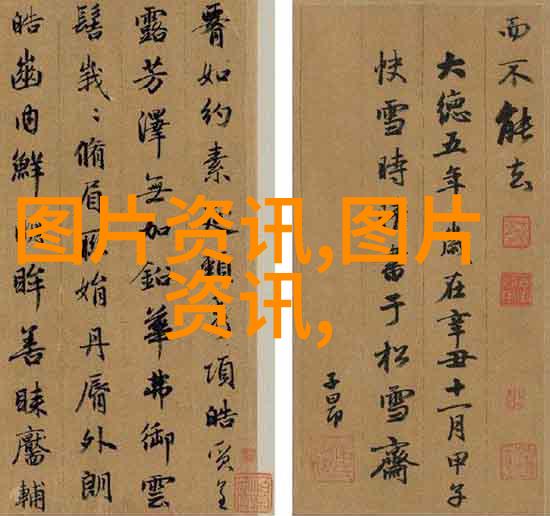 如約素延頸秀項皓質呈
露芳澤無加鉛華弗御雲
髻峩〻脩眉聯娟丹脣外朗
皓齒内鮮明眸善睞靨輔
而不能去
大德五年歲在辛丑十一月甲子
快雪時晴書于松雪齋
子昂
图片资讯,图片
资讯,